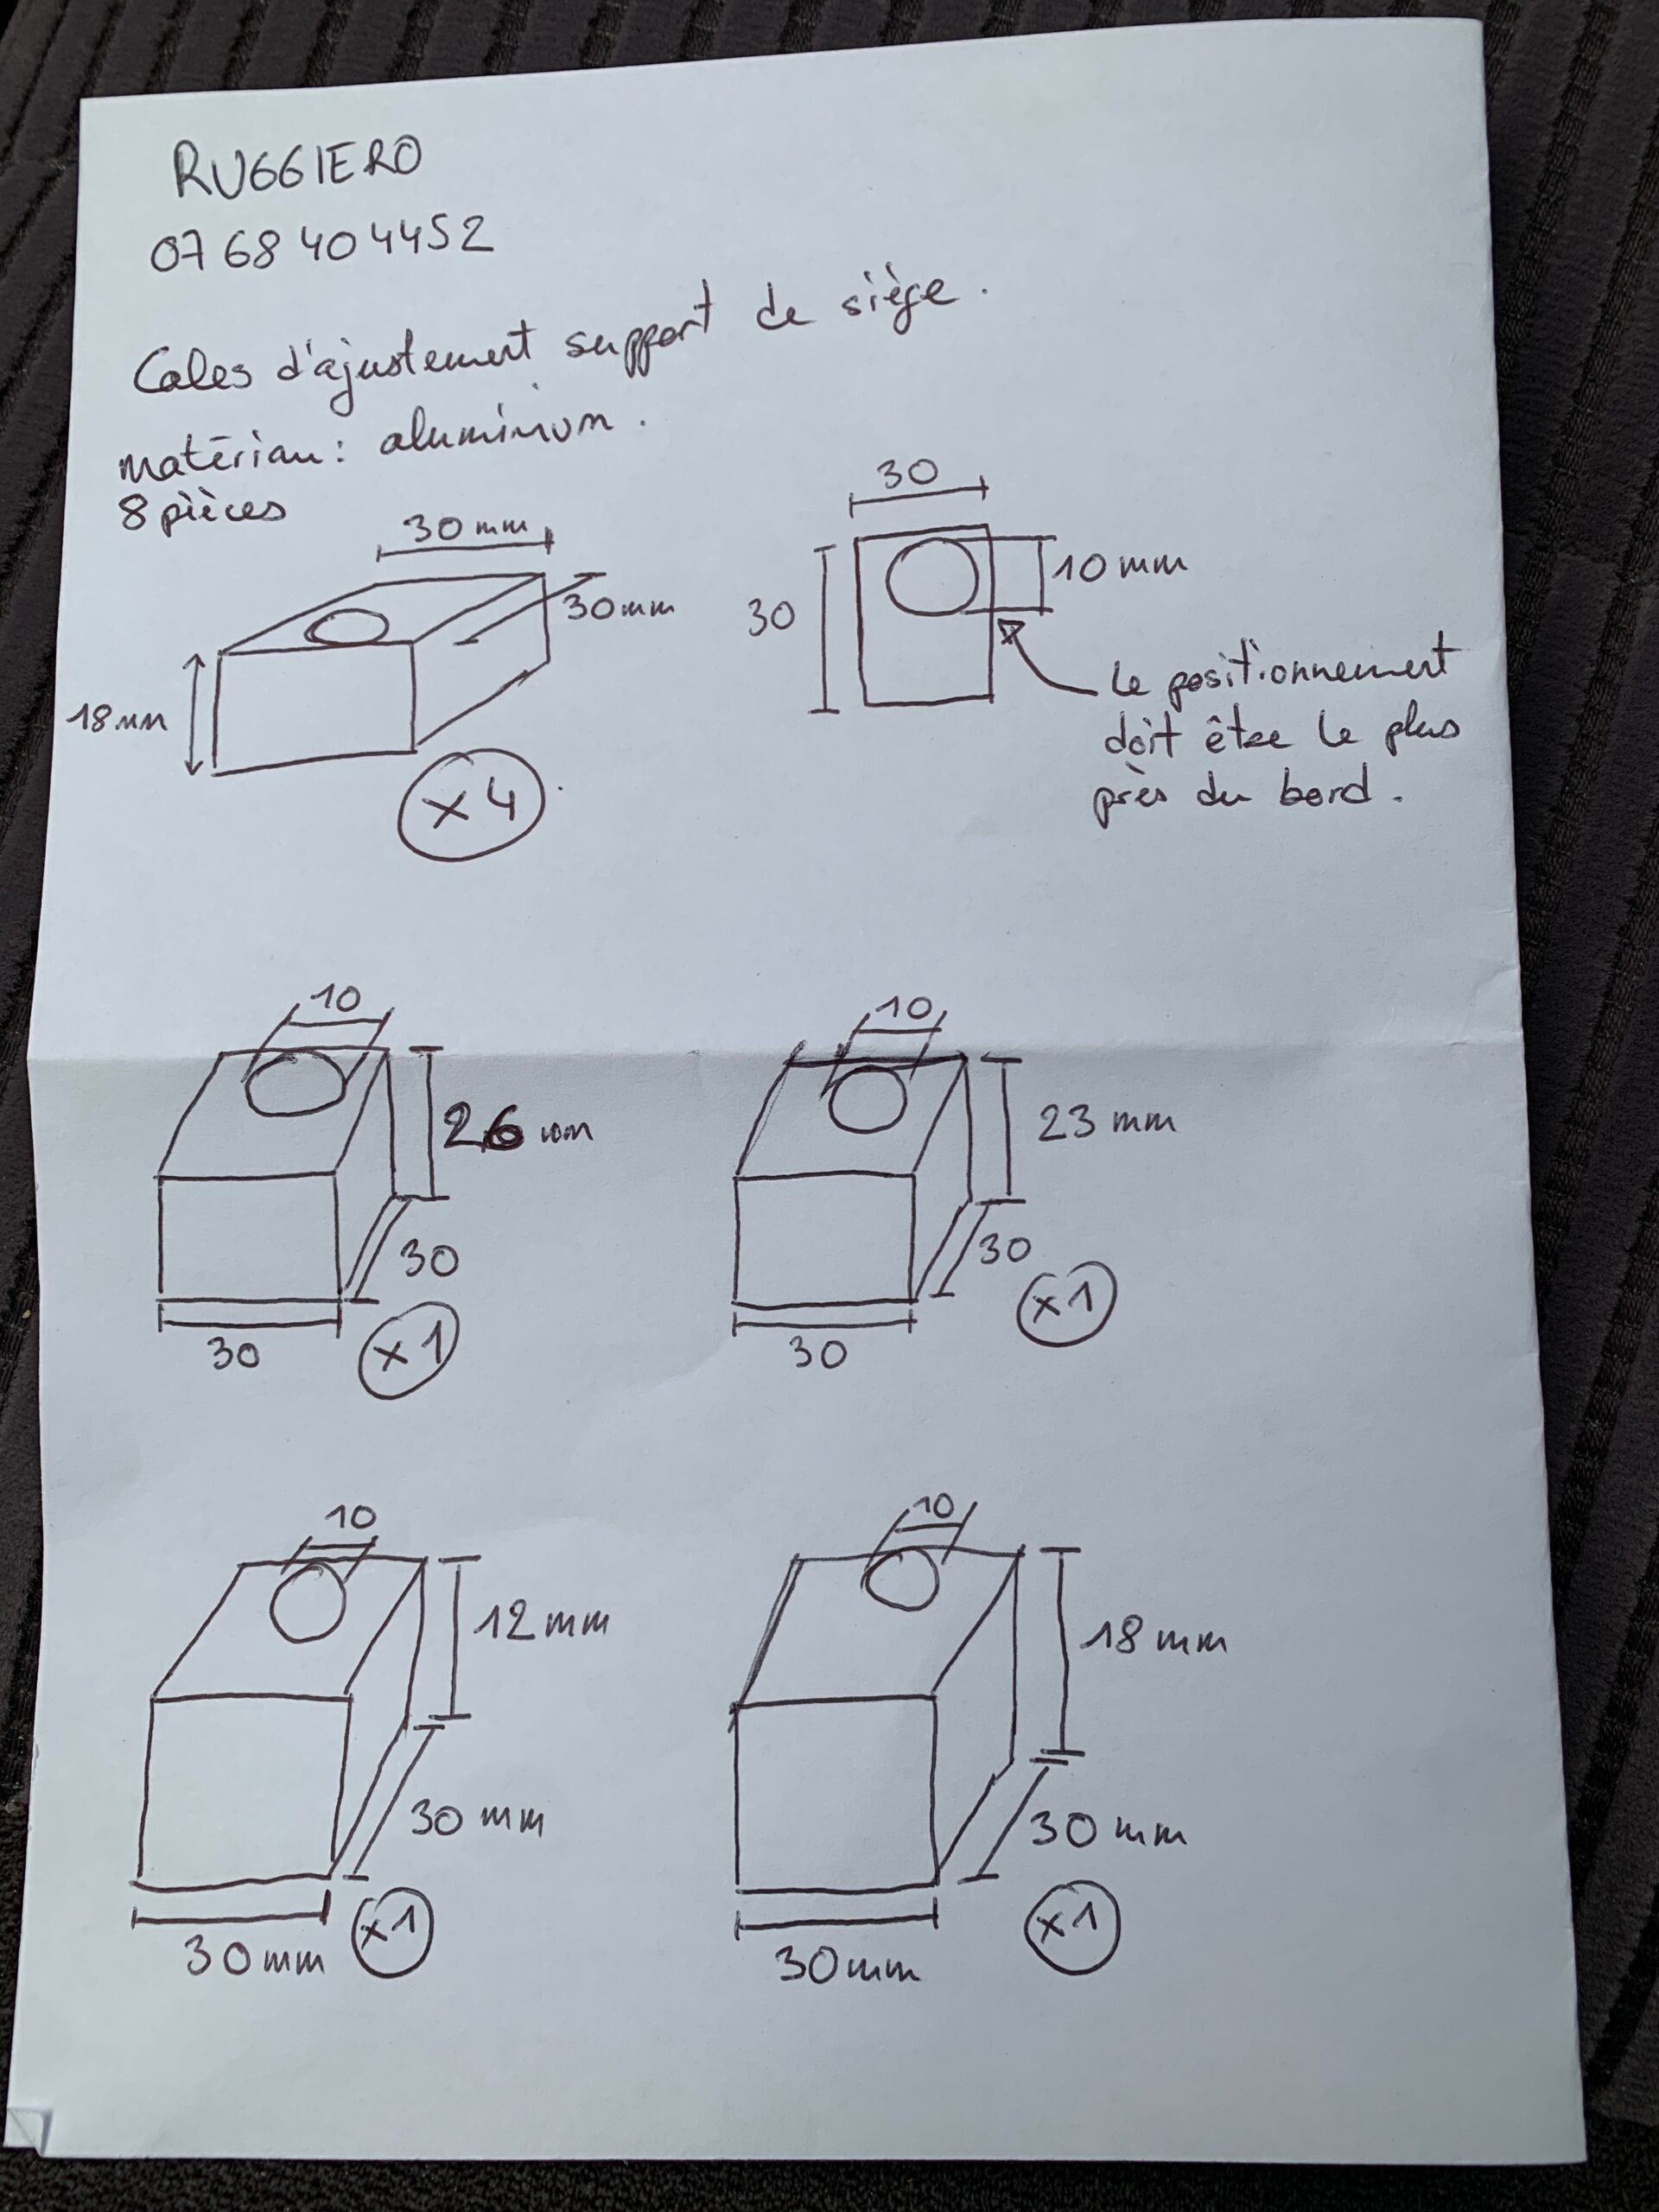 RUGGIERO
07 68 40 44 52
Cales d'ajustement support de siège.
matériau : aluminium.
8 pièces
30 mm
30 mm
18 mm
x 4
30
30
10 mm
Le positionnement
doit être le plus
près du bord.
10
26 mm
30
30
x 1
10
23 mm
30
30
x 1
10
12 mm
30 mm
30 mm
x 1
10
18 mm
30 mm
30 mm
x 1